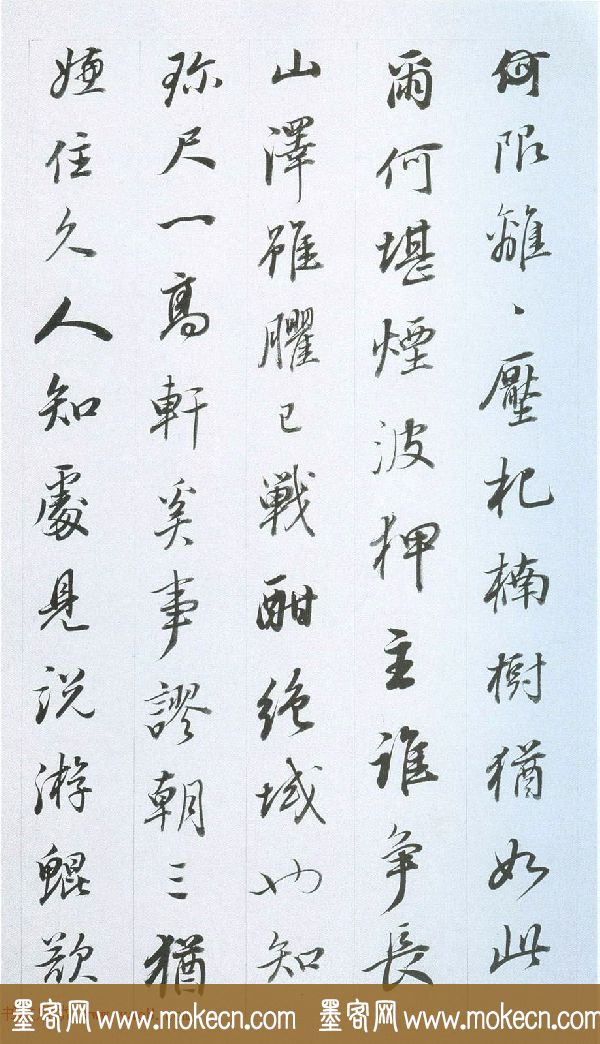 何限離、壓杞楠樹猶如此
爾何堪煙波狎主誰爭長
山澤雖臞已戰酣絕域也知
珍尺一高軒奚事謬朝三猶
嫌住久人知處見說游鯤欲
墨客网 www.mokecn.com 墨客网 www.mokecn.com